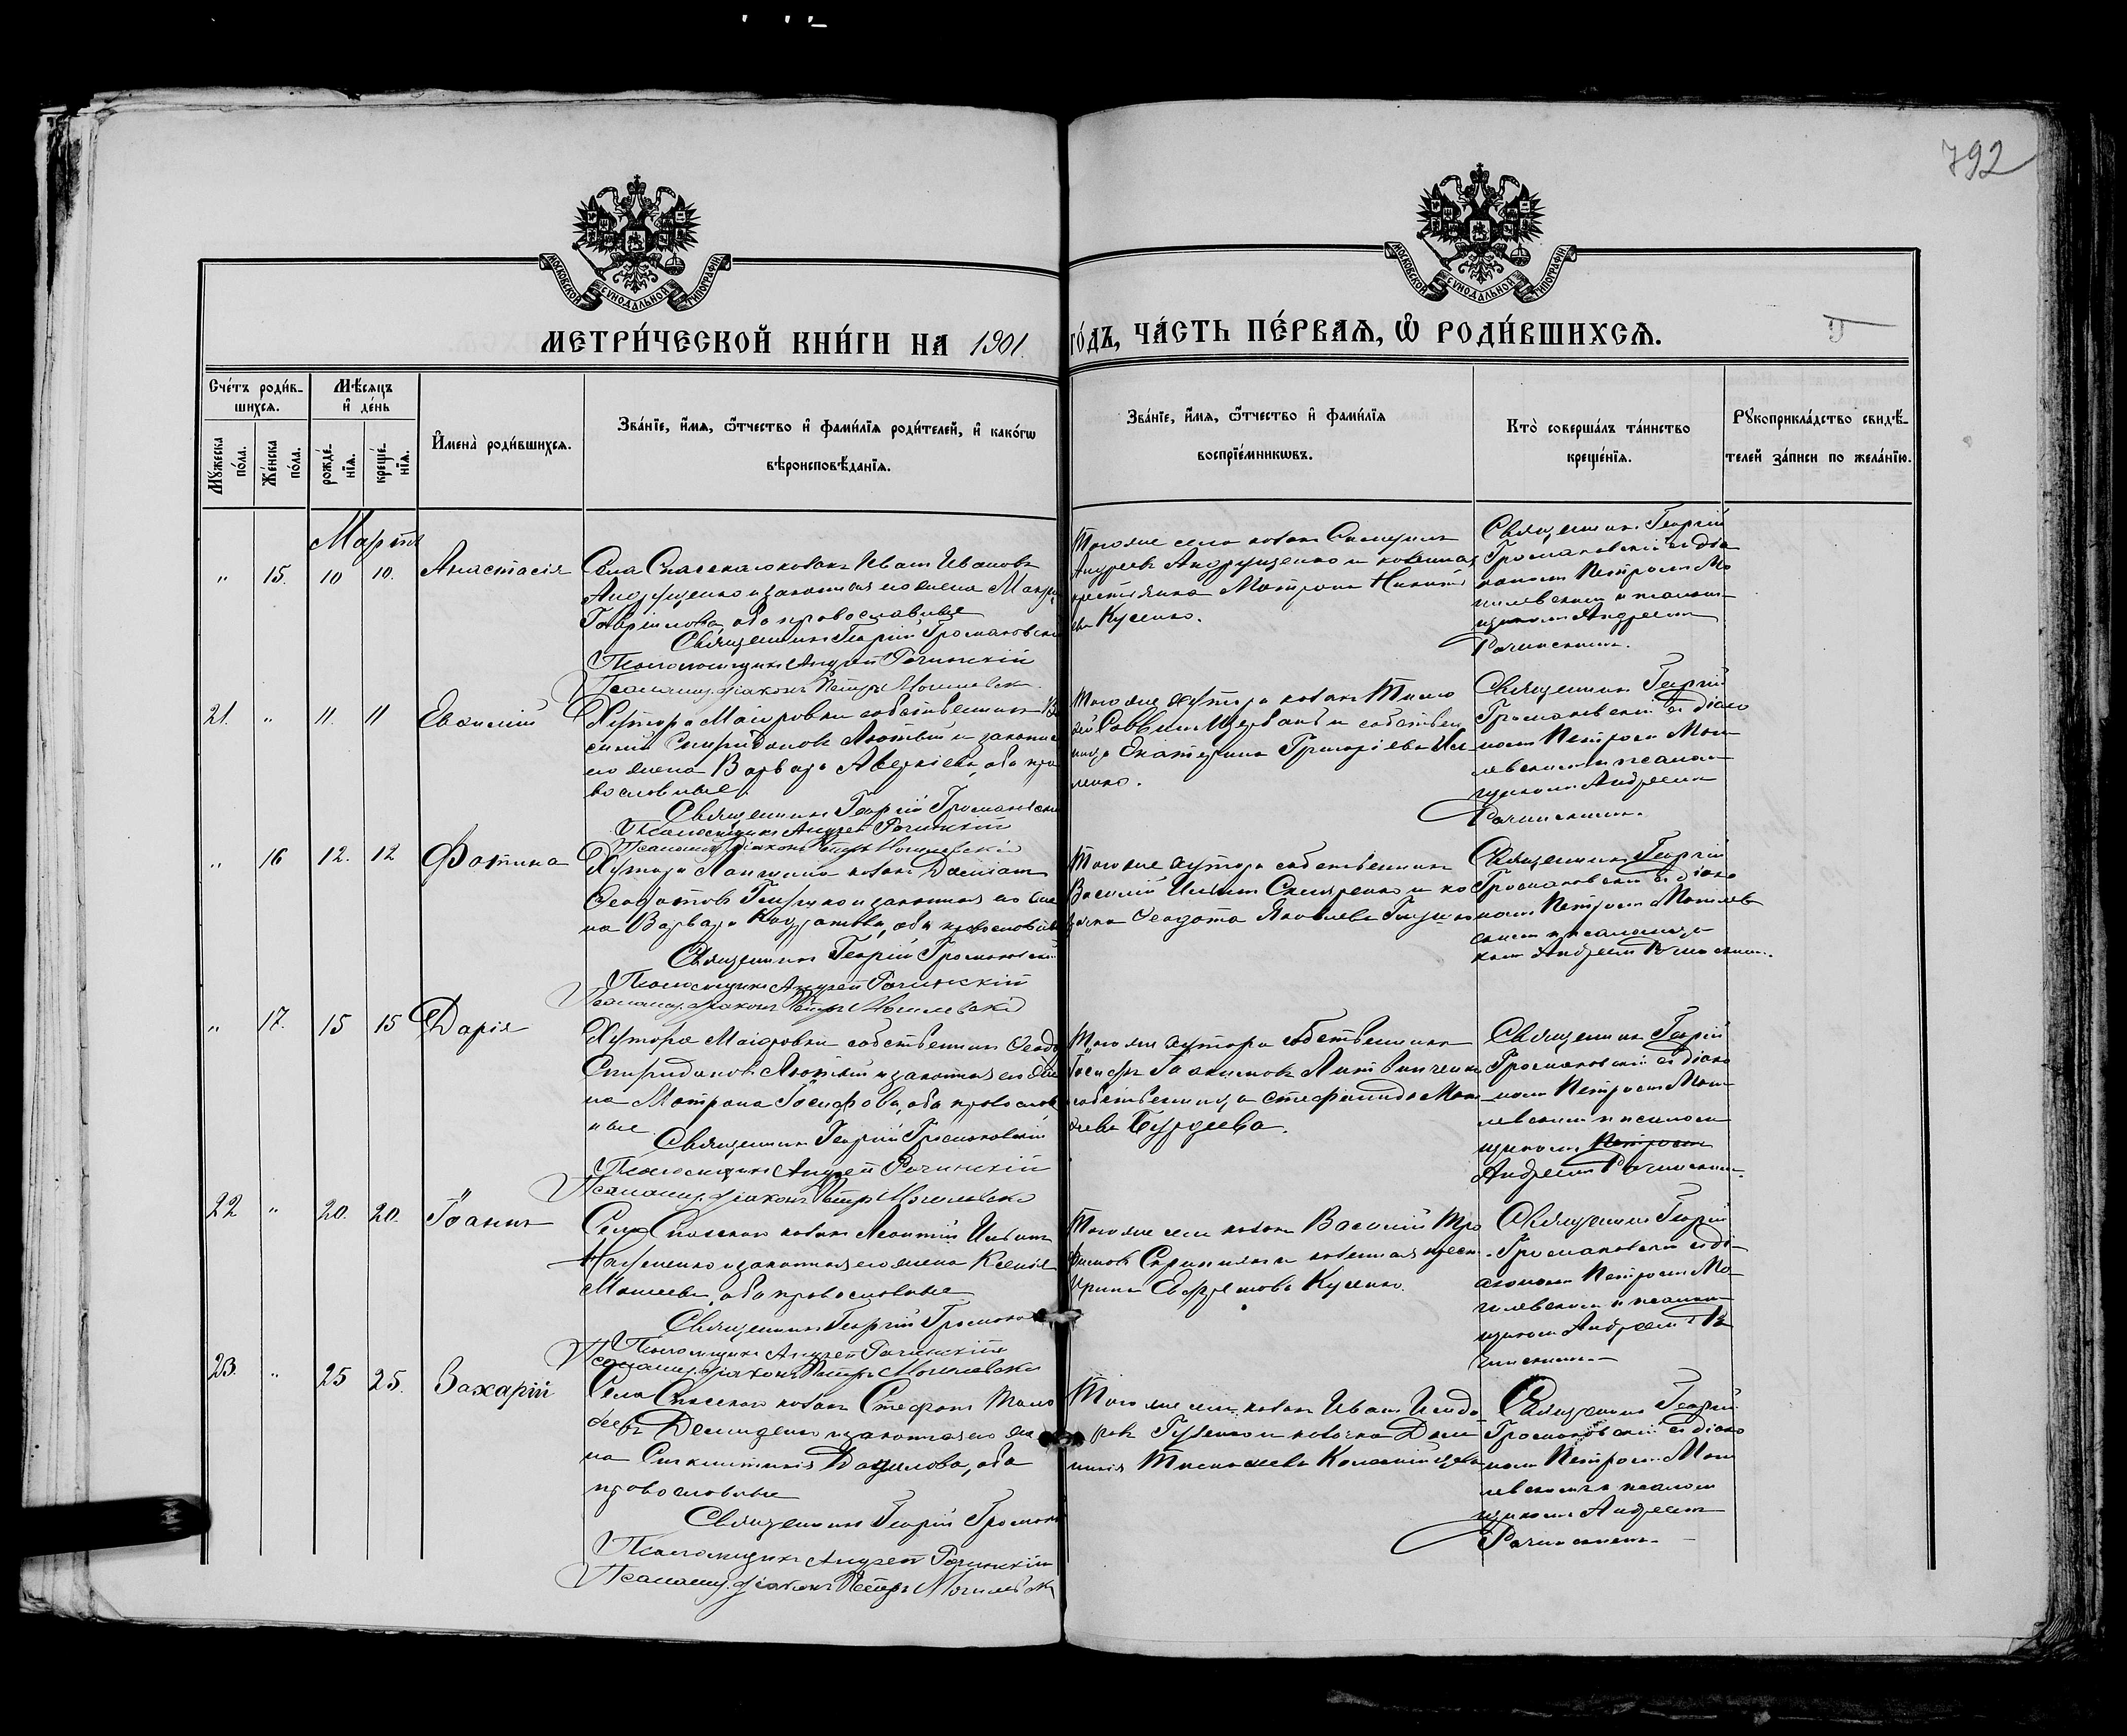 792
МОСКОВСКОЙ СѴНОДАЛЬНОЙ ТИПОГРАФІИ
МОСКОВСКОЙ СѴНОДАЛЬНОЙ ТИПОГРАФІИ
МЕТРИ́ЧЕСКОЙ КНИ́ГИ НА 1901. ГО́ДЪ, ЧА́СТЬ ПЕ́РВАѦ, Ѽ РОДИ́ВШИХСѦ.
Сче́тъ роди́в-
шихсѧ.
Мꙋ́жеска по́ла.
Же́нска по́ла.
Мѣ́сѧцъ
и҆ де́нь
рожде́-
нїѧ.
креще́-
нїѧ.
И҆мена̀ роди́вшихсѧ.
Зва́нїе, и҆́мѧ, ѻ҆́тчество и҆ фами́лїѧ роди́телей, и҆ како́гѡ
вѣроисповѣ́данїѧ.
Зва́нїе, и҆́мѧ, ѻ҆́тчество и҆ фами́лїѧ
воспрїе́мникѡвъ.
Кто̀ соверша́лъ та́инство
креще́нїѧ.
Рꙋкоприкла́дство свидѣ́-
телей за́писи по жела́нїю.
Мартъ
" 15. 10 10. Анастасія
Села Спасскаго козакъ Иванъ Ивановъ
Андрущенко и законная его жена
Гавріилова, оба православные
Священникъ Георгій Громаковскій
Псаломщикъ Андрей Рачинскій
Псаломщ. діаконъ Петръ Могилевскі
Того же села козакъ
Андреевъ Андрущенко и
крестьянка Матрона
Кусенко.
Священник Георгій
Громаковскій съ діа
кономъ Петромъ Мо
гилевскимъ и псалом-
щикомъ Андреем
Рачинскимъ.
21. " 11. 11 Евѳимій
Хутора Маіоровки собственникъ
Спиридоновъ Лютый и законн
его жена Варвара Аверкіева, оба пра
вославные.
Священникъ Георгій Громаковскі
Псаломщикъ Андрей Рачинскій
Псаломщ. діаконъ Петръ Могилевскій
Того же хутора козакъ
Саввинъ и собствен
ница Екатерина Григоріева
ленко.
Священникъ Георгій
Громаковскій съ діако
номъ Петромъ Моги
левскимъ и псалом
щикомъ Андреем
Рачинскимъ.
" 16 12. 12 Фотина
Хутора козакъ Даміанъ
и законная его же
на Варвара Кондратова, оба православны
Священникъ Георгій Громаковскі
Псаломщикъ Андрей Рачинскій
Псаломщ. діаконъ Петръ Могилевскій
Того же хутора собственникъ
Василій Скляренко и ко
зачка Ѳеодота Яковлева
Священникъ Георгій
Громаковскій съ діако
номъ Петромъ Могилев
скимъ и псаломщи
комъ Андреем Рачинским.
" 17. 15 15 Дарія
Хутора Маіоровки собственникъ Ѳеодо
Спиридоновъ Лютый и законная его же
на Матрона Іосифова, оба православ
ные.
Священникъ Георгій Громаковскій
Псаломщикъ Андрей Рачинскій
Псаломщ. діаконъ Петръ Могилевскі
Того же хутора собственникъ
Іосифъ Іоакимовъ Литвиненко
собственница Стефанида
Бурдеева.
Священникъ Георгій
Громаковскій съ діако
номъ Петромъ Моги
левскимъ и псалом
щикомъ Петромъ
Андреем Рачинским.
22 " 20. 20. Іоаннъ
Села Спасскаго козакъ Леонтій
Науменко и законная его жена Ксенія
Моисеева, оба православные
Священникъ Георгій Громаков
Псаломщикъ Андрей Рачинскій
Псаломщ. діаконъ Петръ Могилевскі
Того же села козакъ Василій Тро
фимовъ и
Ирина Кусенко.
Священникъ Георгій
Громаковскій съ ді-
акономъ Петромъ Мо-
гилевскимъ и псалом
щикомъ Андреем Ра
чинскимъ.
23. " 25 25. Захарій
Села Спасскаго козакъ Стефанъ Тимо
ѳеевъ Демиденко и законная его же
на Синклитикія Данилова, оба
православные
Священникъ Георгій Громаков
Псаломщикъ Андрей Рачинскій
Псаломщ. діаконъ Петръ Могилевск
Того же села козакъ Иванъ Исидо
ровъ и козачка Дом
никія Тимоѳеева
Священникъ Георгій
Громаковскій съ діако
номъ Петромъ Моги
левскимъ и псалом
щикомъ Андреем
Рачинскимъ.